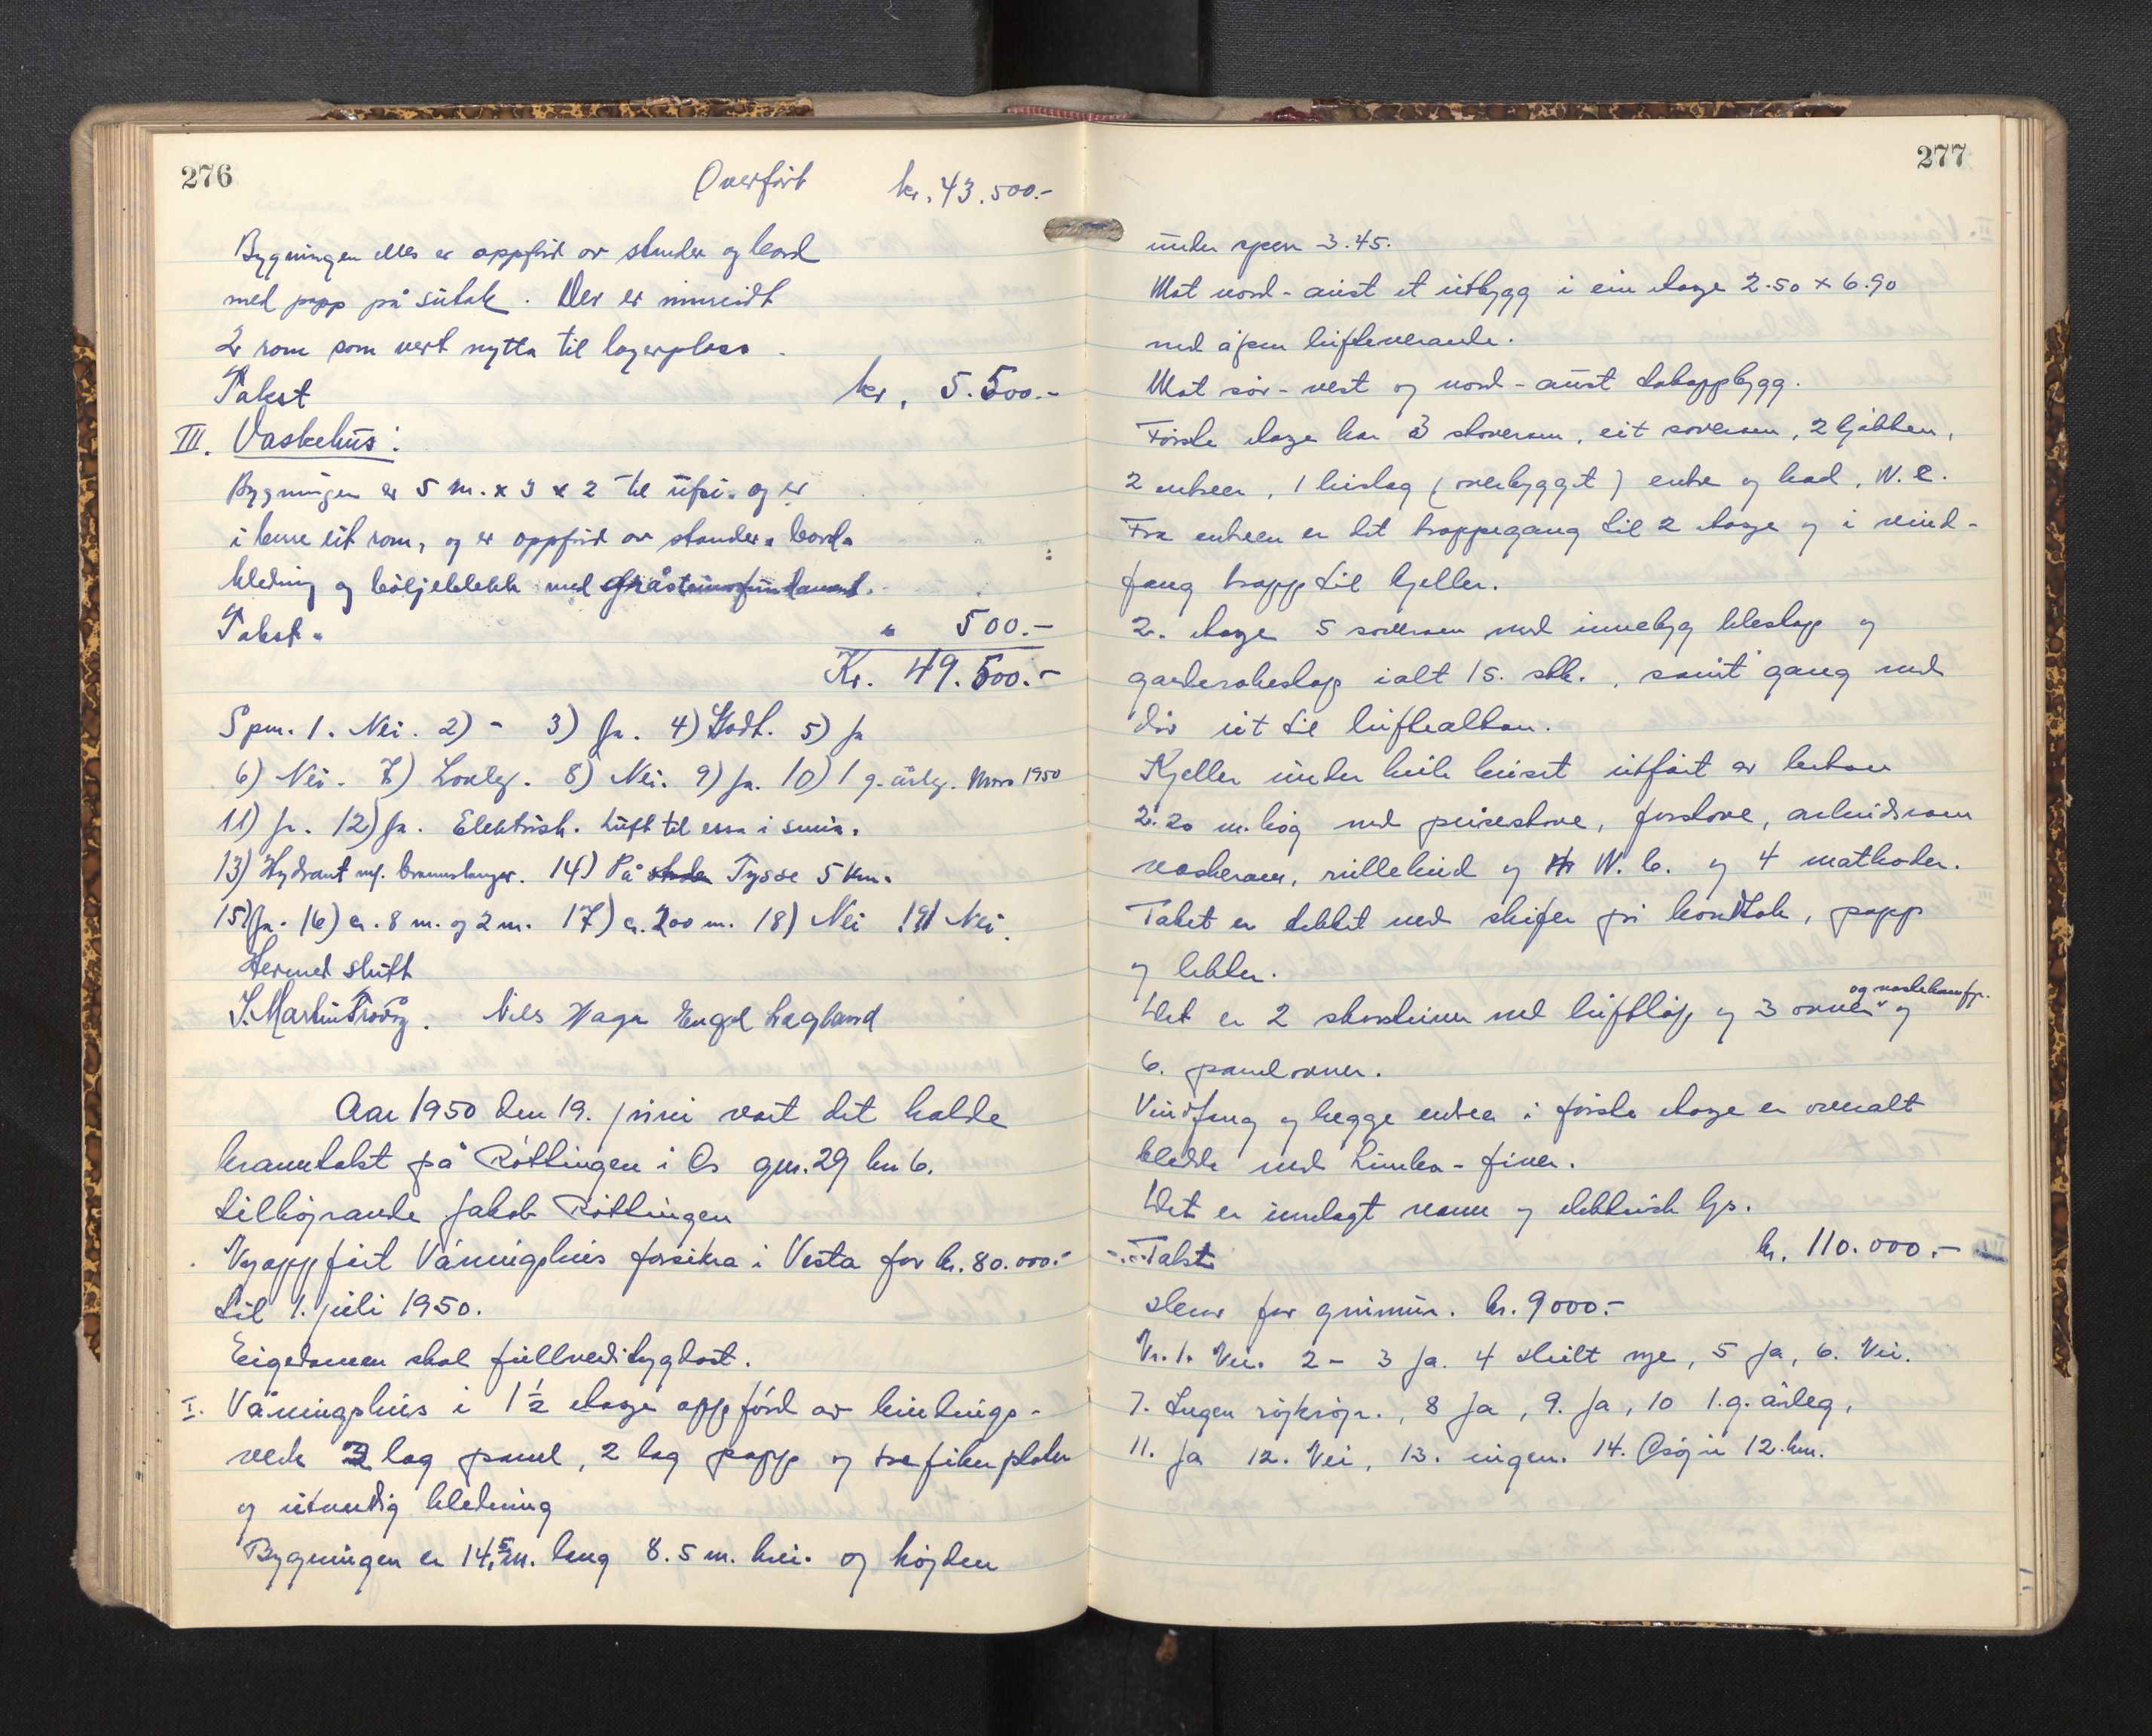 276
Overført kr. 43.500.-
Bygningen elles er oppførd av stender og bord
med papp på sutak. Der er innreidt
2 rom som vert nytta til lagerplass.
Takst kr. 5.500.-
III. Vaskehus:
Bygningen er 5 m. x 3 x 2 til ufsi. og er
i berre eit rom, og er oppførd av stender, bord-
kledning og bøljeblekk med gråsteinsfundament.
Takst. " 500.-
Kr. 49.500.-
Spm. 1. Nei. 2) - 3) Ja. 4) Godt. 5) Ja
6) Nei. 7) Lovleg. 8) Nei. 9) Ja. 10) 1 g. årleg. Mars 1950
11) Ja. 12) Ja. Elektrisk. Luft til essa i smia.
13) Hydrant m/. brannslanger. 14) På Tysse 5 km.
15) Ja. 16) ca. 8 m. og 2 m. 17) ca. 200 m. 18) Nei 19) Nei.
Hermed slutt
J. Martin Nils Haga Engel Lagland
Aar 1950 den 19. juni vart det halde
branntakst på Røttingen i Os gnr. 29 bn 6.
tilhøyrande Jakob Røttingen
Nyoppført Våningshus forsikra i Vesta for kr. 80.000.-
til 1. juli 1950.
Eigedomen skal fullverditrygdast.
I. Våningshus i 1 1/2 etasje oppførd av bindings-
verk 3 lag panel, 2 lag papp og trefiberplater
og utvendig kledning
Bygningen er 14,5 m. lang 8.5 m. brei. og højden
277
under 3.45.
Mot nord-aust et utbygg i ein etasje 2.50 x 6.90
med åpen luftveranda.
Mot sør-vest og nord-aust takoppbygg.
Første etasje har 3 stoverom, eit soverom, 2 kjøkken,
2 entreer, 1 bislag (overbygget) entre og bad, W.C.
Fra entreen er det trappegang til 2 etasje og i vind-
fang trapp til kjeller.
2. etasje 5 soverom med innebyg kleskap og
garderobeskap ialt 15. stk., samt gang med
dør ut til luftealtan.
Kjeller under heile huset utført av betong
2.20 m. høg med peisestove, forstove, arbeidsrom
vaskerom, rullebud og W.C. og 4 matboder.
Taket er tekket med skifer på bordtak, papp
og lekter.
Det er 2 skorsteiner med luftløp og 3 ovner og
6. panelovner.
Vindfang og begge entrea i første etasje er overalt
kledde med Limba-finer.
Det er innlagt vann og elektrisk lys.
Takst kr. 110.000.-
Herav for grunnmur. kr. 9000.-
Nr. 1. Nei. 2 - 3 Ja. 4 Heilt nye, 5 Ja, 6. Nei.
7. Ingen røykrøyr., 8 Ja, 9. Ja, 10 1. g. årleg,
11. Ja 12. Nei, 13. ingen. 14. Osøyri 12. km.